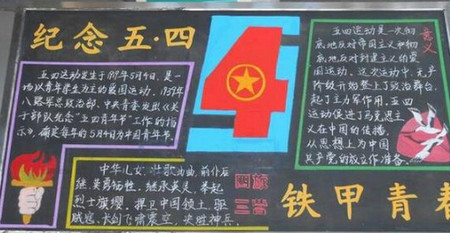 纪念五·四
五四运动发生于1919年5月4日,是一
场以青年学生为主的爱国运动,1939年
八路军总政治部、中央青委发出《关
于部队纪念"五四青年节"工作的指
示》,确定每年的5月4日为中国青年节。
4
意义
五四运动是一次彻
底地反对帝国主义和彻
底地反对封建主义的爱
国运动。这次运动中,无产
阶级开始登上了政治舞台,
起了主力军作用,五四
运动促进了马克思主
义在中国的传播,
从思想上为中国
共产党的成立作准备。
中华儿女,壮歌由曲,前仆后
继,英勇牺牲,继承英灵,举起
烈士旗缨,捍卫中国领土,驱
贼寇,长剑飞啸震空,决胜神兵。
团旗
三营
铁甲青春